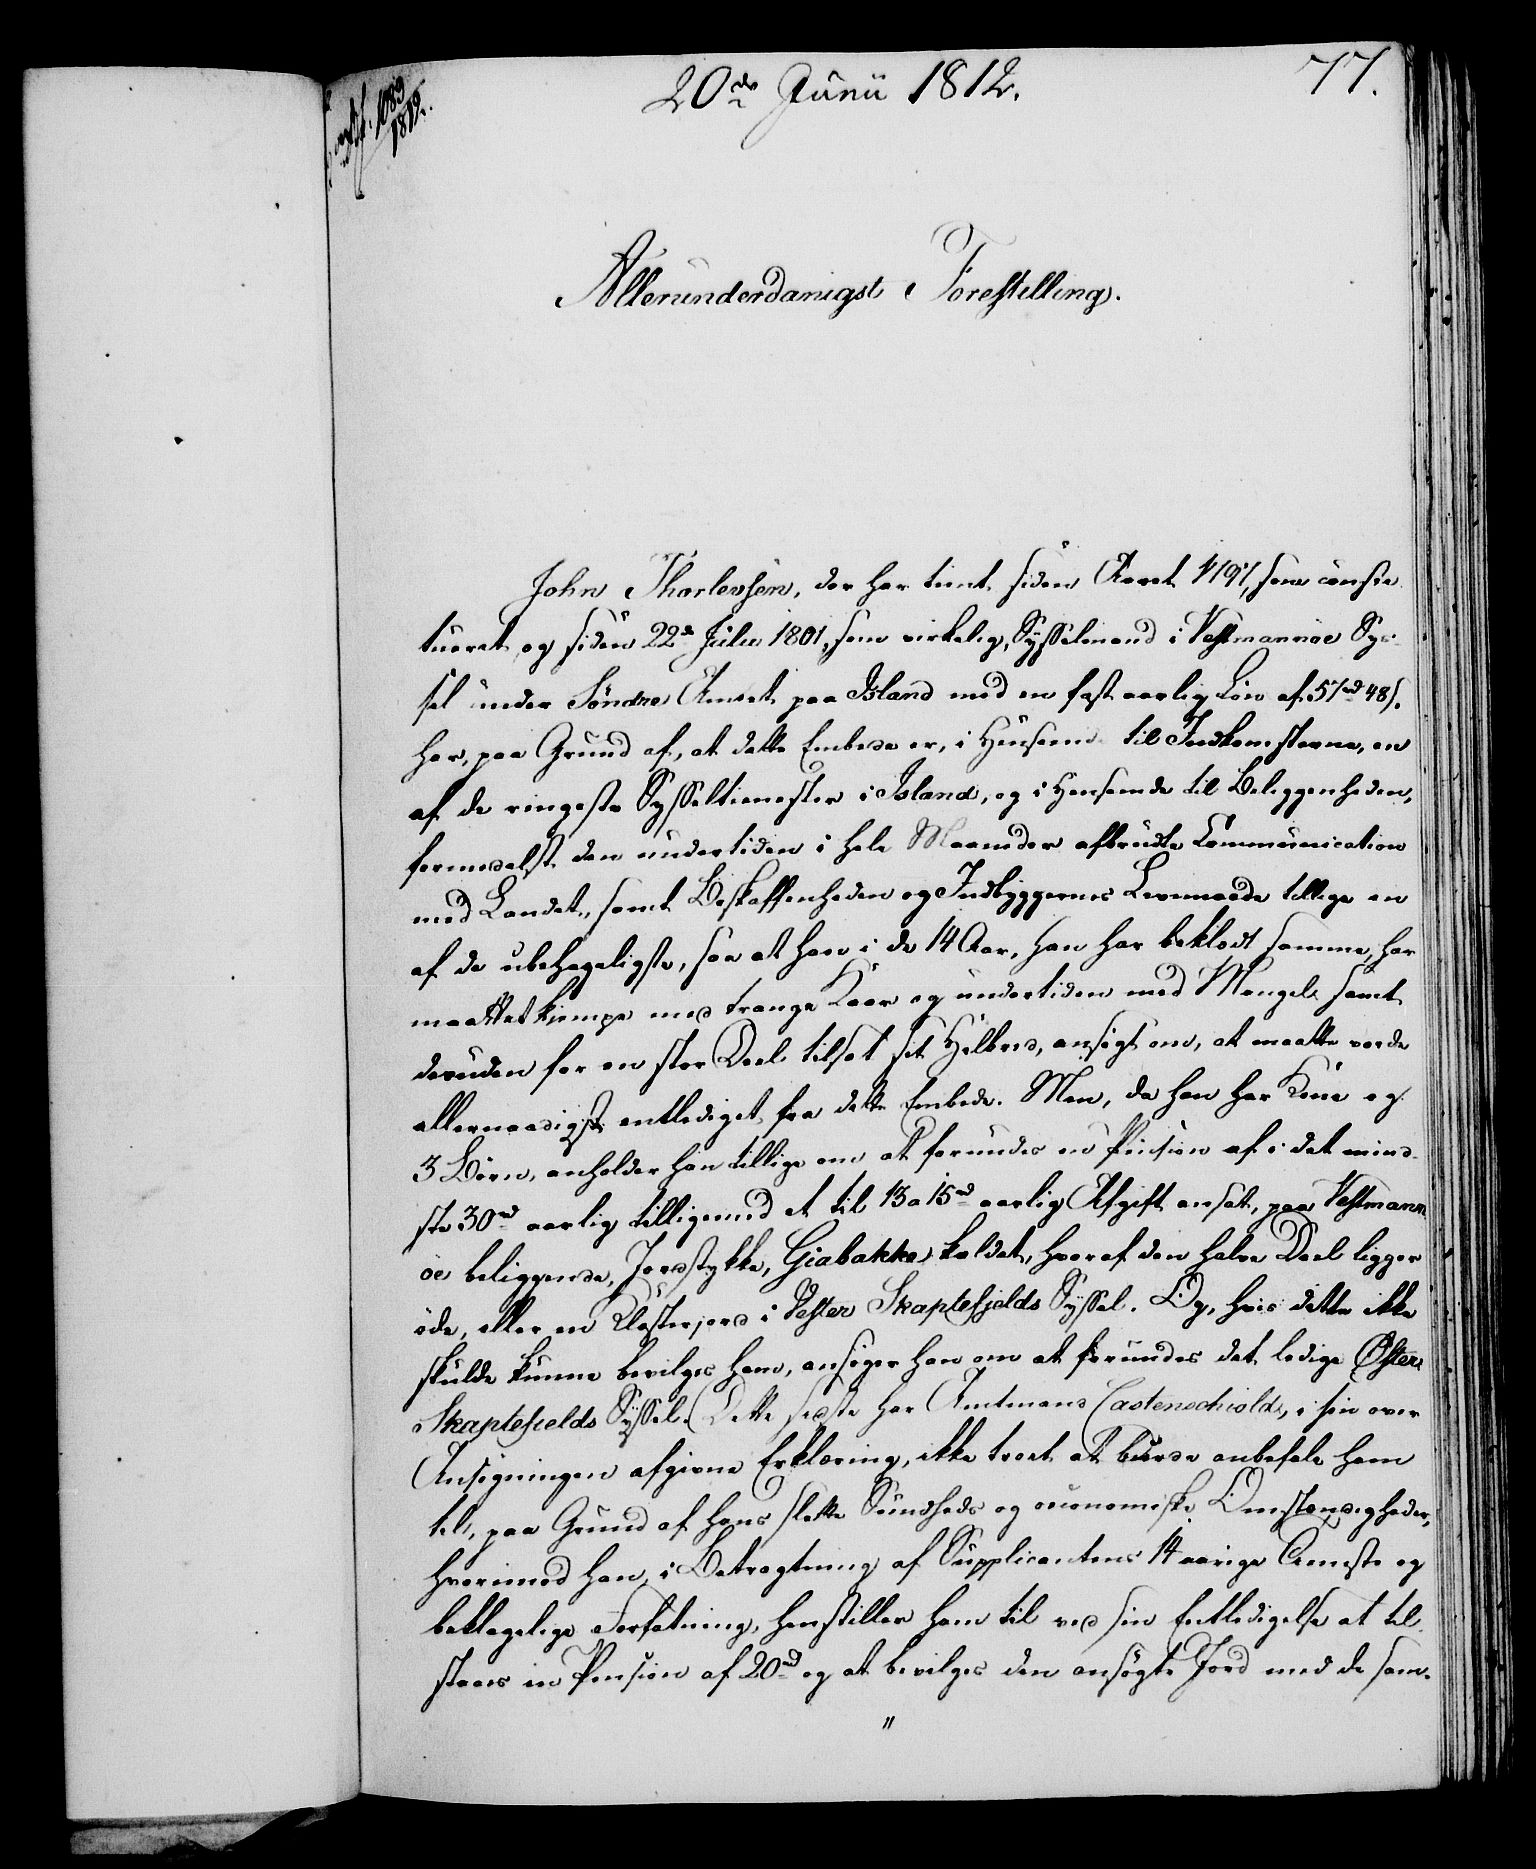 20de Junii 1812.
77.
1083
1812.
Allerunderdanigst Forestilling.
John Thorlevsen, der har tient siden Aaret 1797, som consti
tueret og siden 22de Julii 1801, som virkelig, Sysselmand i Vestmannöe Sys-
sel under Söndre Amtet paa Island med en fast aarlig Lön af 57rd 48s,
har, paa Grund af, at dette Embede er, i Henseende til Indkomsterne, en
af de ringeste Sysseltienester i Island, og i Henseende til Beliggenheden,
formedelst den undertiden i hele Maaneder afbrudte Communication
med Landet, samt Beskaffenheden og Indbyggernes Levemaade tillige en
af de ubehageligste, saa at han i de 14 Aar, han har beklædt samme, har
maattet kiempe med trange Kaar og undertiden med Mangel samt
desuden for en stor Deel tilsat sit Helbred, ansögt om, at maatte vorde
allernaadigst entlediget fra dette Embede. Men, da han har Kone og
3 Börn, anholder han tillige om at forundes en Pension af i det mind-
ste 30rd aarlig tilligemed et til 13 a 15rd aarlig Afgift ansat, paa Vestmann
öe beliggende, Jordstykke, Giabakke kaldet, hvoraf den halve Deel ligger
öde, eller en Klosterjord i Vester Skaptefjelds Syssel. Og, hvis dette ikke
skulde kunne bevilges ham, ansöger han om at forundes det ledige Öster
Skaptefields Syssel. Dette sidste har Amtmand Castenschiold, i sin over
Ansögningen afgivne Erklæring, ikke troet at burde anbefale ham
til, paa Grund af hans slette Sundheds og oeconomiske Omstændigheder,
hvorimod han, i Betragtning af Supplicantens 14 aarige Tieneste og
beklagelige Forfatning, henstiller ham til ved sin Entledigelse at til-
staaes en Pension af 20rd og at bevilges den ansögte Jord med de sam-
"